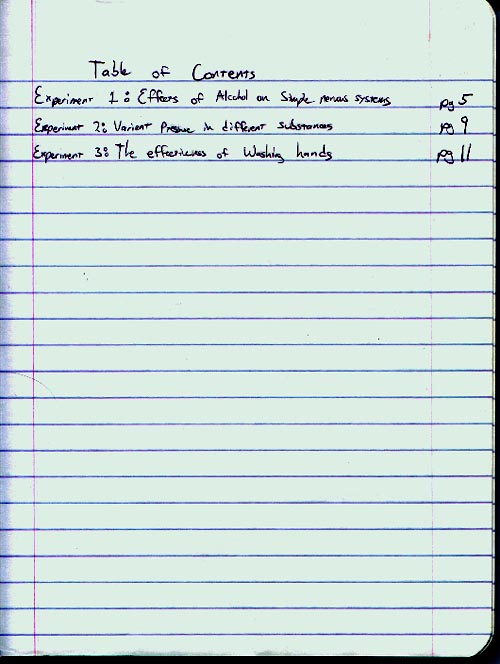 Table of Contents
Experiment 1: Effects of Alcohol on Simple nervous systems pg 5
Experiment 2: Varient Pressue in different substances pg 9
Experiment 3: The effectiveness of Washing hands pg 11